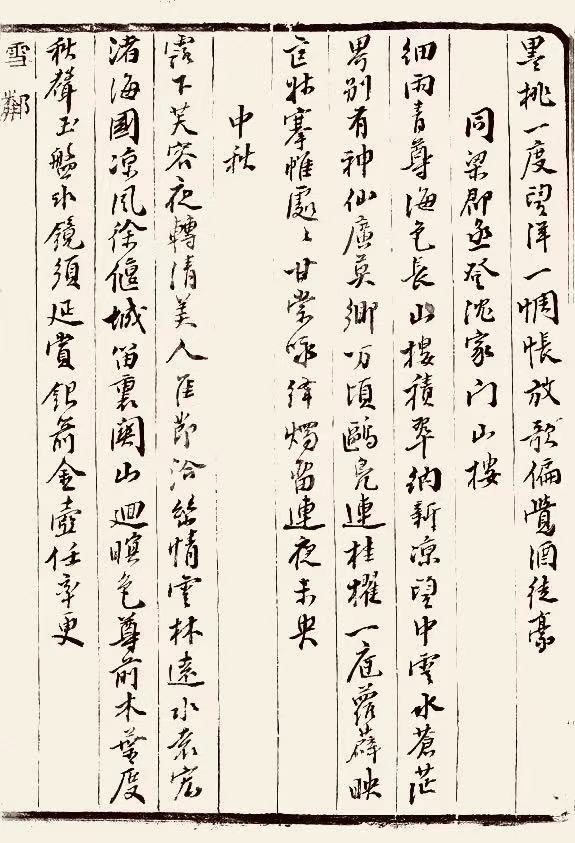 墨桃一度望洋一惆悵放歌偏覺酒徒豪
同梁郡丞登沈家门山樓
细雨青尊海气長山樓積翠納新凉望中雲水蒼茫
界别有神仙廣莫鄉万頃鷗鳧連桂櫂一庭蘿薜映
匡牀搴帷處〻甘棠咏绛燭留連夜未央
中秋
露下芙容夜轉清美人佳節洽情雲林遠水袁宏
渚海國凉風徐偃城笛裏關山迴暝色尊前木葉度
秋聲玉盤氷鏡須延賞銀箭金壺任率更
雪鄰